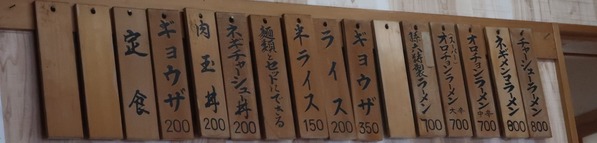 チャーシューラーメン 800
ネギメンマラーメン 800
オロチョンラーメン 中辛 700
(スーパー)オロチョンラーメン 大辛 700
孫六特製ラーメン 700
ギョウザ 350
ライス 200
半ライス 150
麺類とセットにできる
ネギチャーシュー丼 200
肉玉丼 200
ギョウザ 200
定食